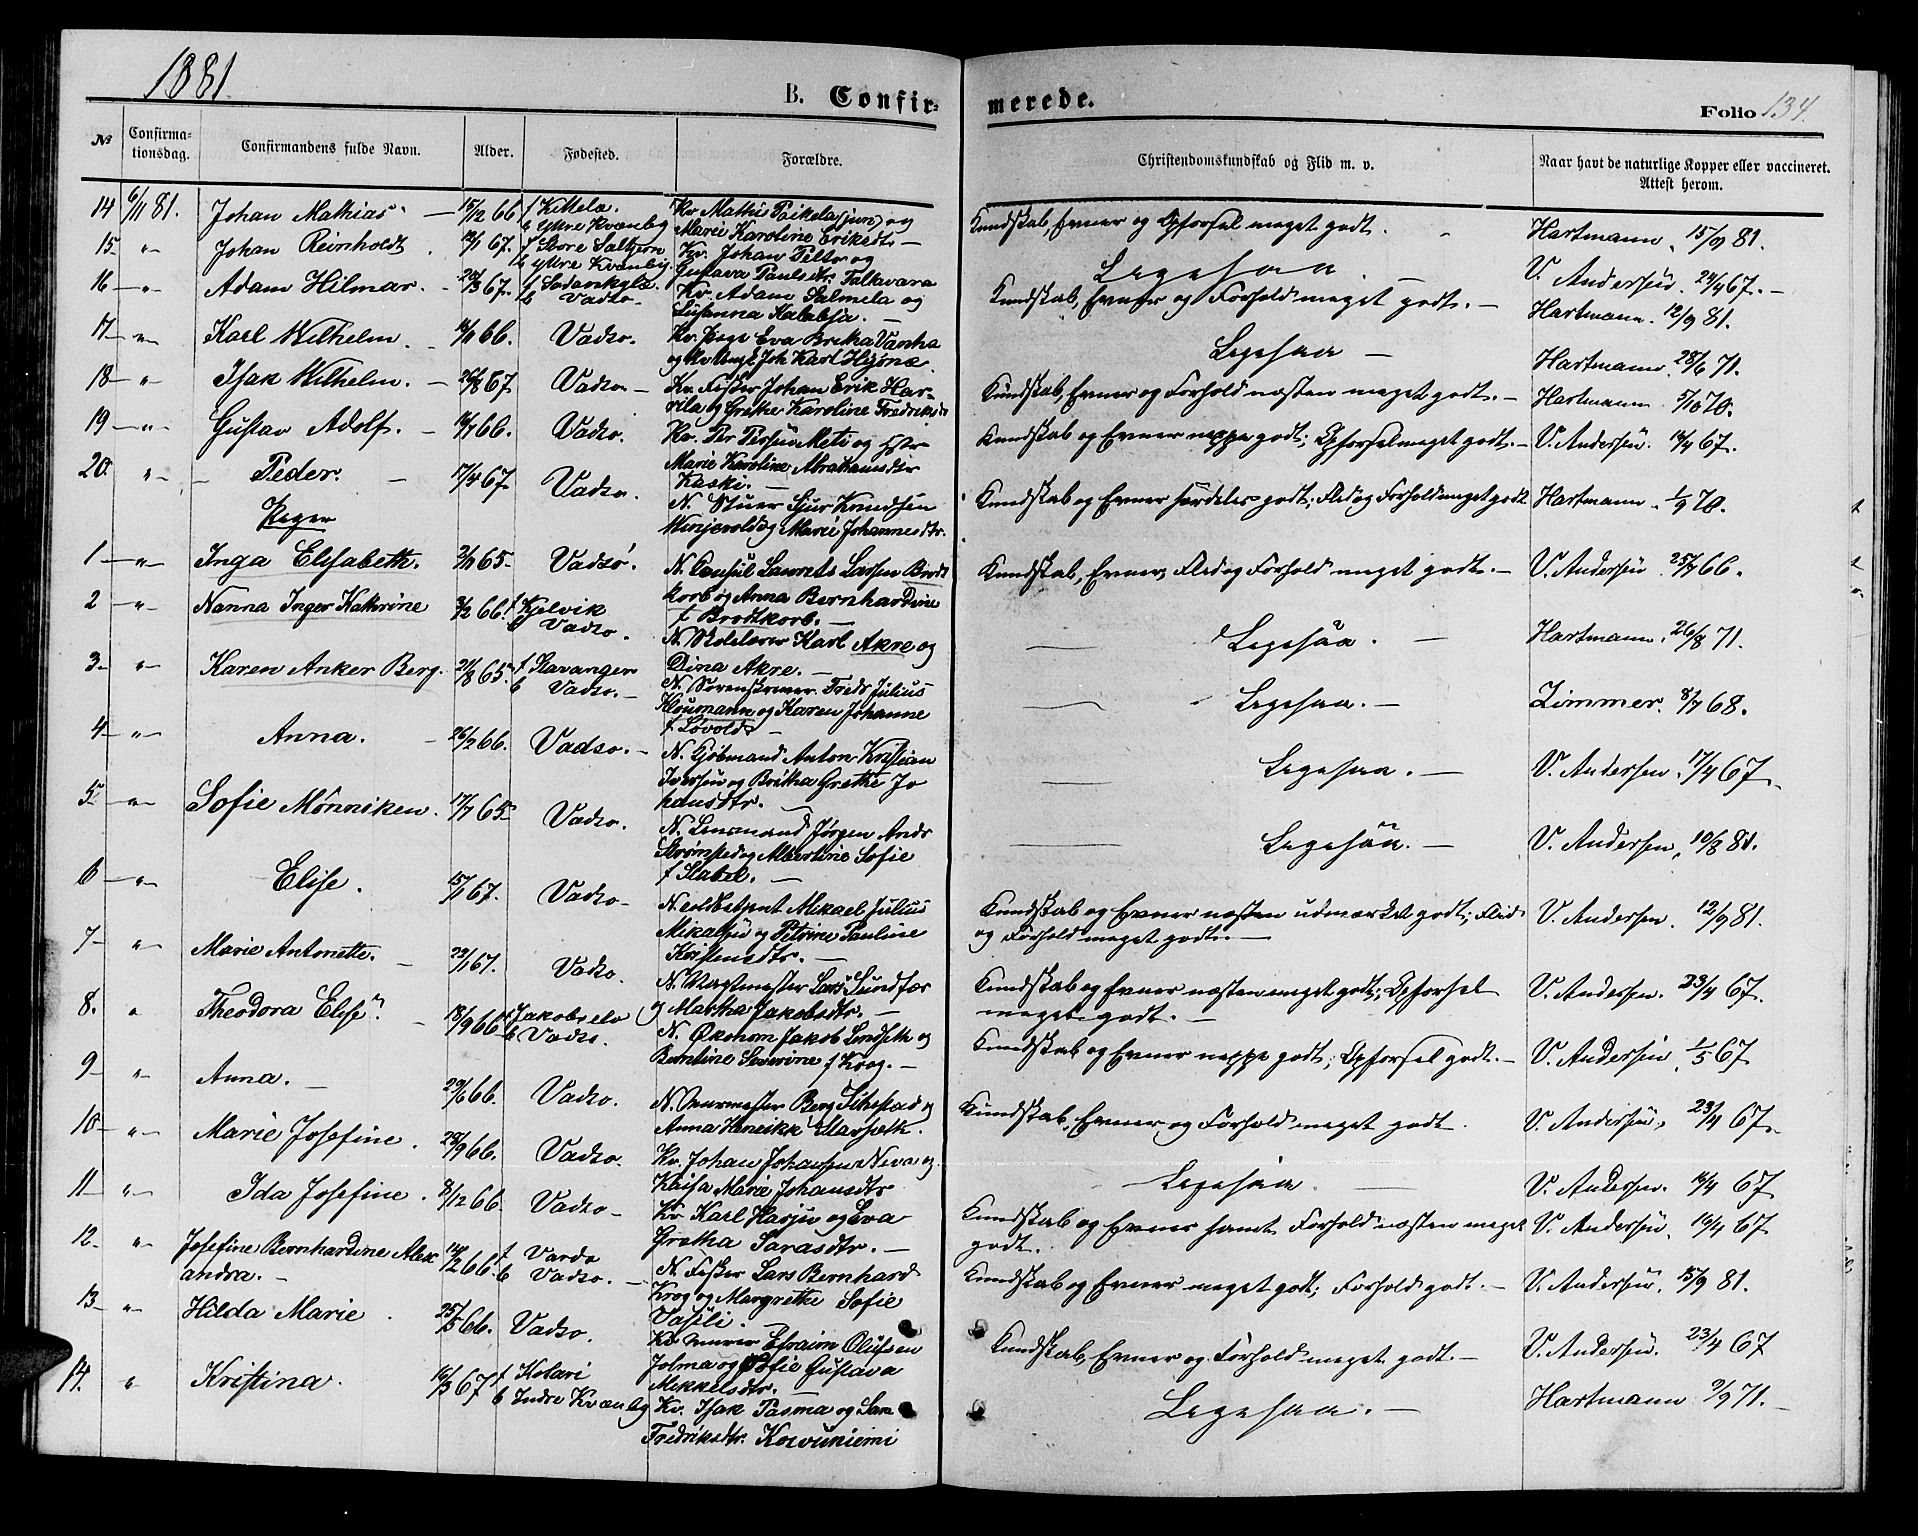 1881.
B. Confir-
merede.
Folio 134.
№
Confirma-
tionsdag.
Confirmandens fulde Navn.
Alder.
Fødested.
Forældre.
Christendomskundskab og Flid m. v.
Naar havt de naturlige Kopper eller vaccineret.
Attest herom.
14 6/11 81. Johan Mathias 15/12 66 f Kittelæ. Kv. Mathis Paikela (jun) og
b Yttre Kvænby Marie Karoline Eriksdtr.
Kundskab, Evner og Opførsel meget godt. Hartmann 15/9 81.
15 " Johan Reinholdt 67. Kv. Johan Pelto og
b Yttre Kvænby. Gustava Paulsdtr. Talkavara
Ligesaa. V. Andersen. 24/4 67.
16 " Adam Hilmar 67. f Sodankylæ. Kv. Adam Salmela og
b Vadsø Susanna
Kundskab, Evner og Forhold meget godt. Hartmann. 12/9 81.
17 " Karl Wilhelm 66. Vadsø. Kv. Pige Eva Britha Vanha
og Kv. Ungk. Joh. Karl
Ligesaa Hartmann. 28/6 71.
18 " Isak Wilhelm. 67. Vadsø Kv. Fisker Johan Erik Har-
rila og Grethe Karoline Fredriksdtr
Kundskab, Evner og Forhold næsten meget godt. Hartmann 70.
19 " Gustav Adolf. 66. Vadsø. Kv. Per Persen Meti og Hstr
Marie Karoline Abrahamsdtr
Kaski.
Kundskab og Evner neppe godt; Opførsel meget godt. V. Andersen. 67.
20. " Peder. 17/4 67 Vadsø. N. Stuer Sjur Knudsen
og Marie Johannesdtr.
Kundskab og Evner særdeles godt; Flid og Forhold meget godt Hartmann 1/9 70.
Piger
1 " Inga Elisabeth. 65 Vadsø. N. Consul Laurits Larsen Brodt
korb og Anna Bernhardine
f Brodtkorb.
Kundskab, Evner, Flid og Forhold meget godt. V. Andersen 66.
2 " Nanna Inger Kathrine 66. f Kjelvik N. Skolelærer Karl Akre og
b Vadsø. Dina Akre.
Ligesaa. Hartmann. 26/8 71.
3 " Karen Anker Berg. 21/8 65. f Stavanger N. Sorenskriver Fredr Julius
b Vadsø. Kloumann og Karen Johanne
f Løvold
Ligesaa. Zimmer. 68.
4 " Anna. 26/2 66. Vadsø. N. Gjøbmand Anton Kristian
Iversen og Britha Grethe Jo
hansdtr.
Ligesaa. V. Andersen. 17/4 67
5 " Sofie Mønniken. 17/7 65 Vadsø. N. Lensmand Jørgen Andr
Strømsted og Albertine Sofie
f Stabel.
Ligesaa. V. Andersen. 10/8 81.
6 " Elise. 15/1 67. Vadsø N. Toldbetjent Mikael Julius
Mikalsen og Petrine Pauline
Kristensdtr.
Kundskab og Evner næsten udmærket godt; Flid
og Forhold meget godt. V. Andersen. 12/9 81.
7 " Marie Antonette. 23/1 67. Vadsø. N. Vagtmester Lars Sundfær
og Martha Jakobsdtr.
Kundskab og Evner næsten meget godt; Opførsel
meget godt. V. Andersen. 23/4 67.
8. " Theodora Elise 18/9 66 f Jakobselv N. Økonom Jakob Lindseth og
b Vadsø. Berntine Severine f Krog.
Kundskab og Evner neppe godt; Opførsel godt. V. Andersen 1/5 67
9 " Anna. 29/6 66. Vadsø. N. Murmester Berg og
Anna Henrikk
Kundskab, Evner og Forhold meget godt. V. Andersen. 23/4 67.
10 " Marie Josefine. 66. Vadsø. Kv. Johan Johansen Neva og
Kaisa Marie Johansdtr
Ligesaa. V. Andersen. 67
11 " Ida Josefine. 8/12 66 Vadsø Kv. Karl Harju og Eva
Gretha Larsdtr.
Kundskab og Evner samt Forhold næsten meget
godt. V. Andersen. 67
12 " Josefine Bernhardine Alex
andra. 66. f Vardø N. Fisker Lars Bernhard
b Vadsø. Krog og Margrethe Sofie
Vasili.
Kundskab og Evner meget godt; Forhold godt. V. Andersen. 15/9 81.
13 " Hilda Marie. 25/5 66. Vadsø. Kv. Murer Efraim Olufsen
Jolma og Sofie Gustava
Mikkelsdtr.
Kundskab, Evner og Forhold meget godt. V. Andersen. 23/4 67
14. " Kristina. 67 f Kolari Kv. Isak Pasma og Sara
b Indre Kvænby Fredriksdtr.
Ligesaa. Hartmann 71.